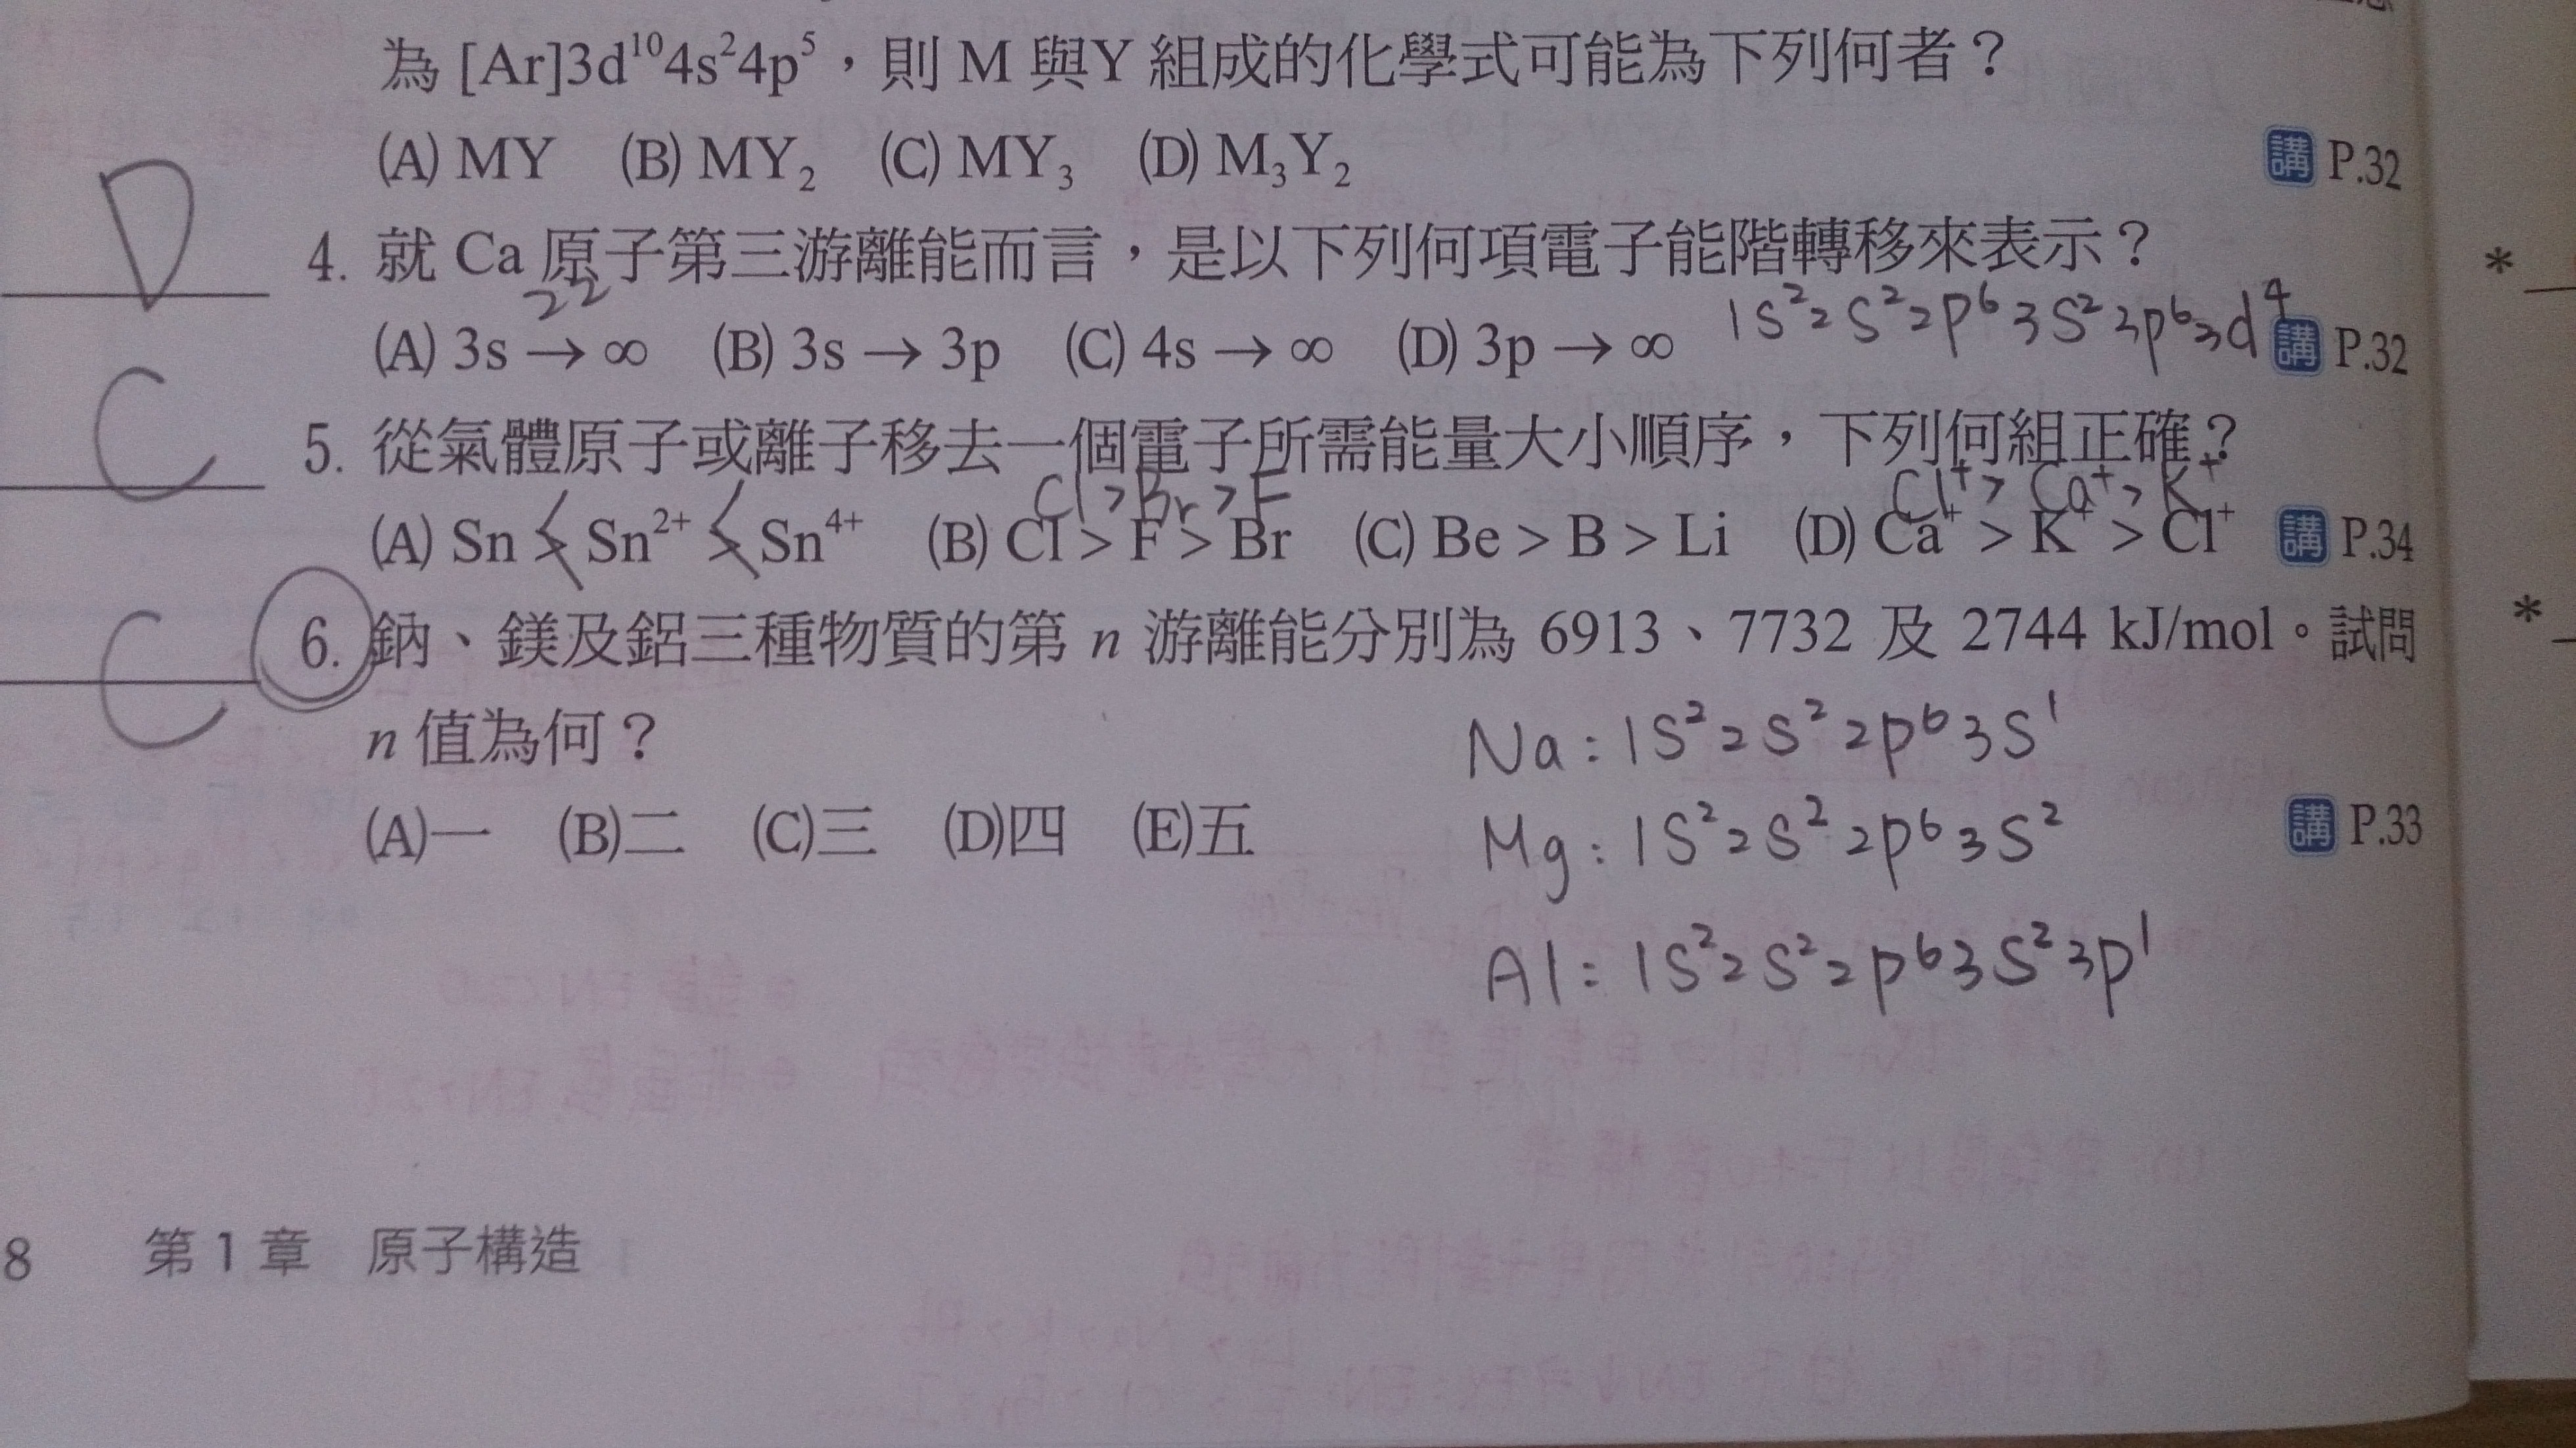 為 [Ar]3d¹⁰4s²4p⁵，則 M 與Y 組成的化學式可能為下列何者？
(A) MY (B) MY₂ (C) MY₃ (D) M₃Y₂ 講 P.32
D 4. 就 Ca 原子第三游離能而言，是以下列何項電子能階轉移來表示？ *
22
1s²2s²2p⁶3s²3p⁶3d⁴
(A) 3s → ∞ (B) 3s → 3p (C) 4s → ∞ (D) 3p → ∞ 講 P.32
C 5. 從氣體原子或離子移去一個電子所需能量大小順序，下列何組正確？
Cl > Br > F Cl⁺> Ca⁺> K⁺
(A) Sn < Sn²⁺ < Sn⁴⁺ (B) Cl > F > Br (C) Be > B > Li (D) Ca⁺ > K⁺ > Cl⁺ 講 P.34
C 6. 鈉、鎂及鋁三種物質的第 n 游離能分別為 6913、7732 及 2744 kJ/mol。試問 *
n 值為何？
Na : 1s²2s²2p⁶3s¹
(A)一 (B)二 (C)三 (D)四 (E)五 講 P.33
Mg : 1s²2s²2p⁶3s²
Al : 1s²2s²2p⁶3s²3p¹
8 第 1 章 原子構造